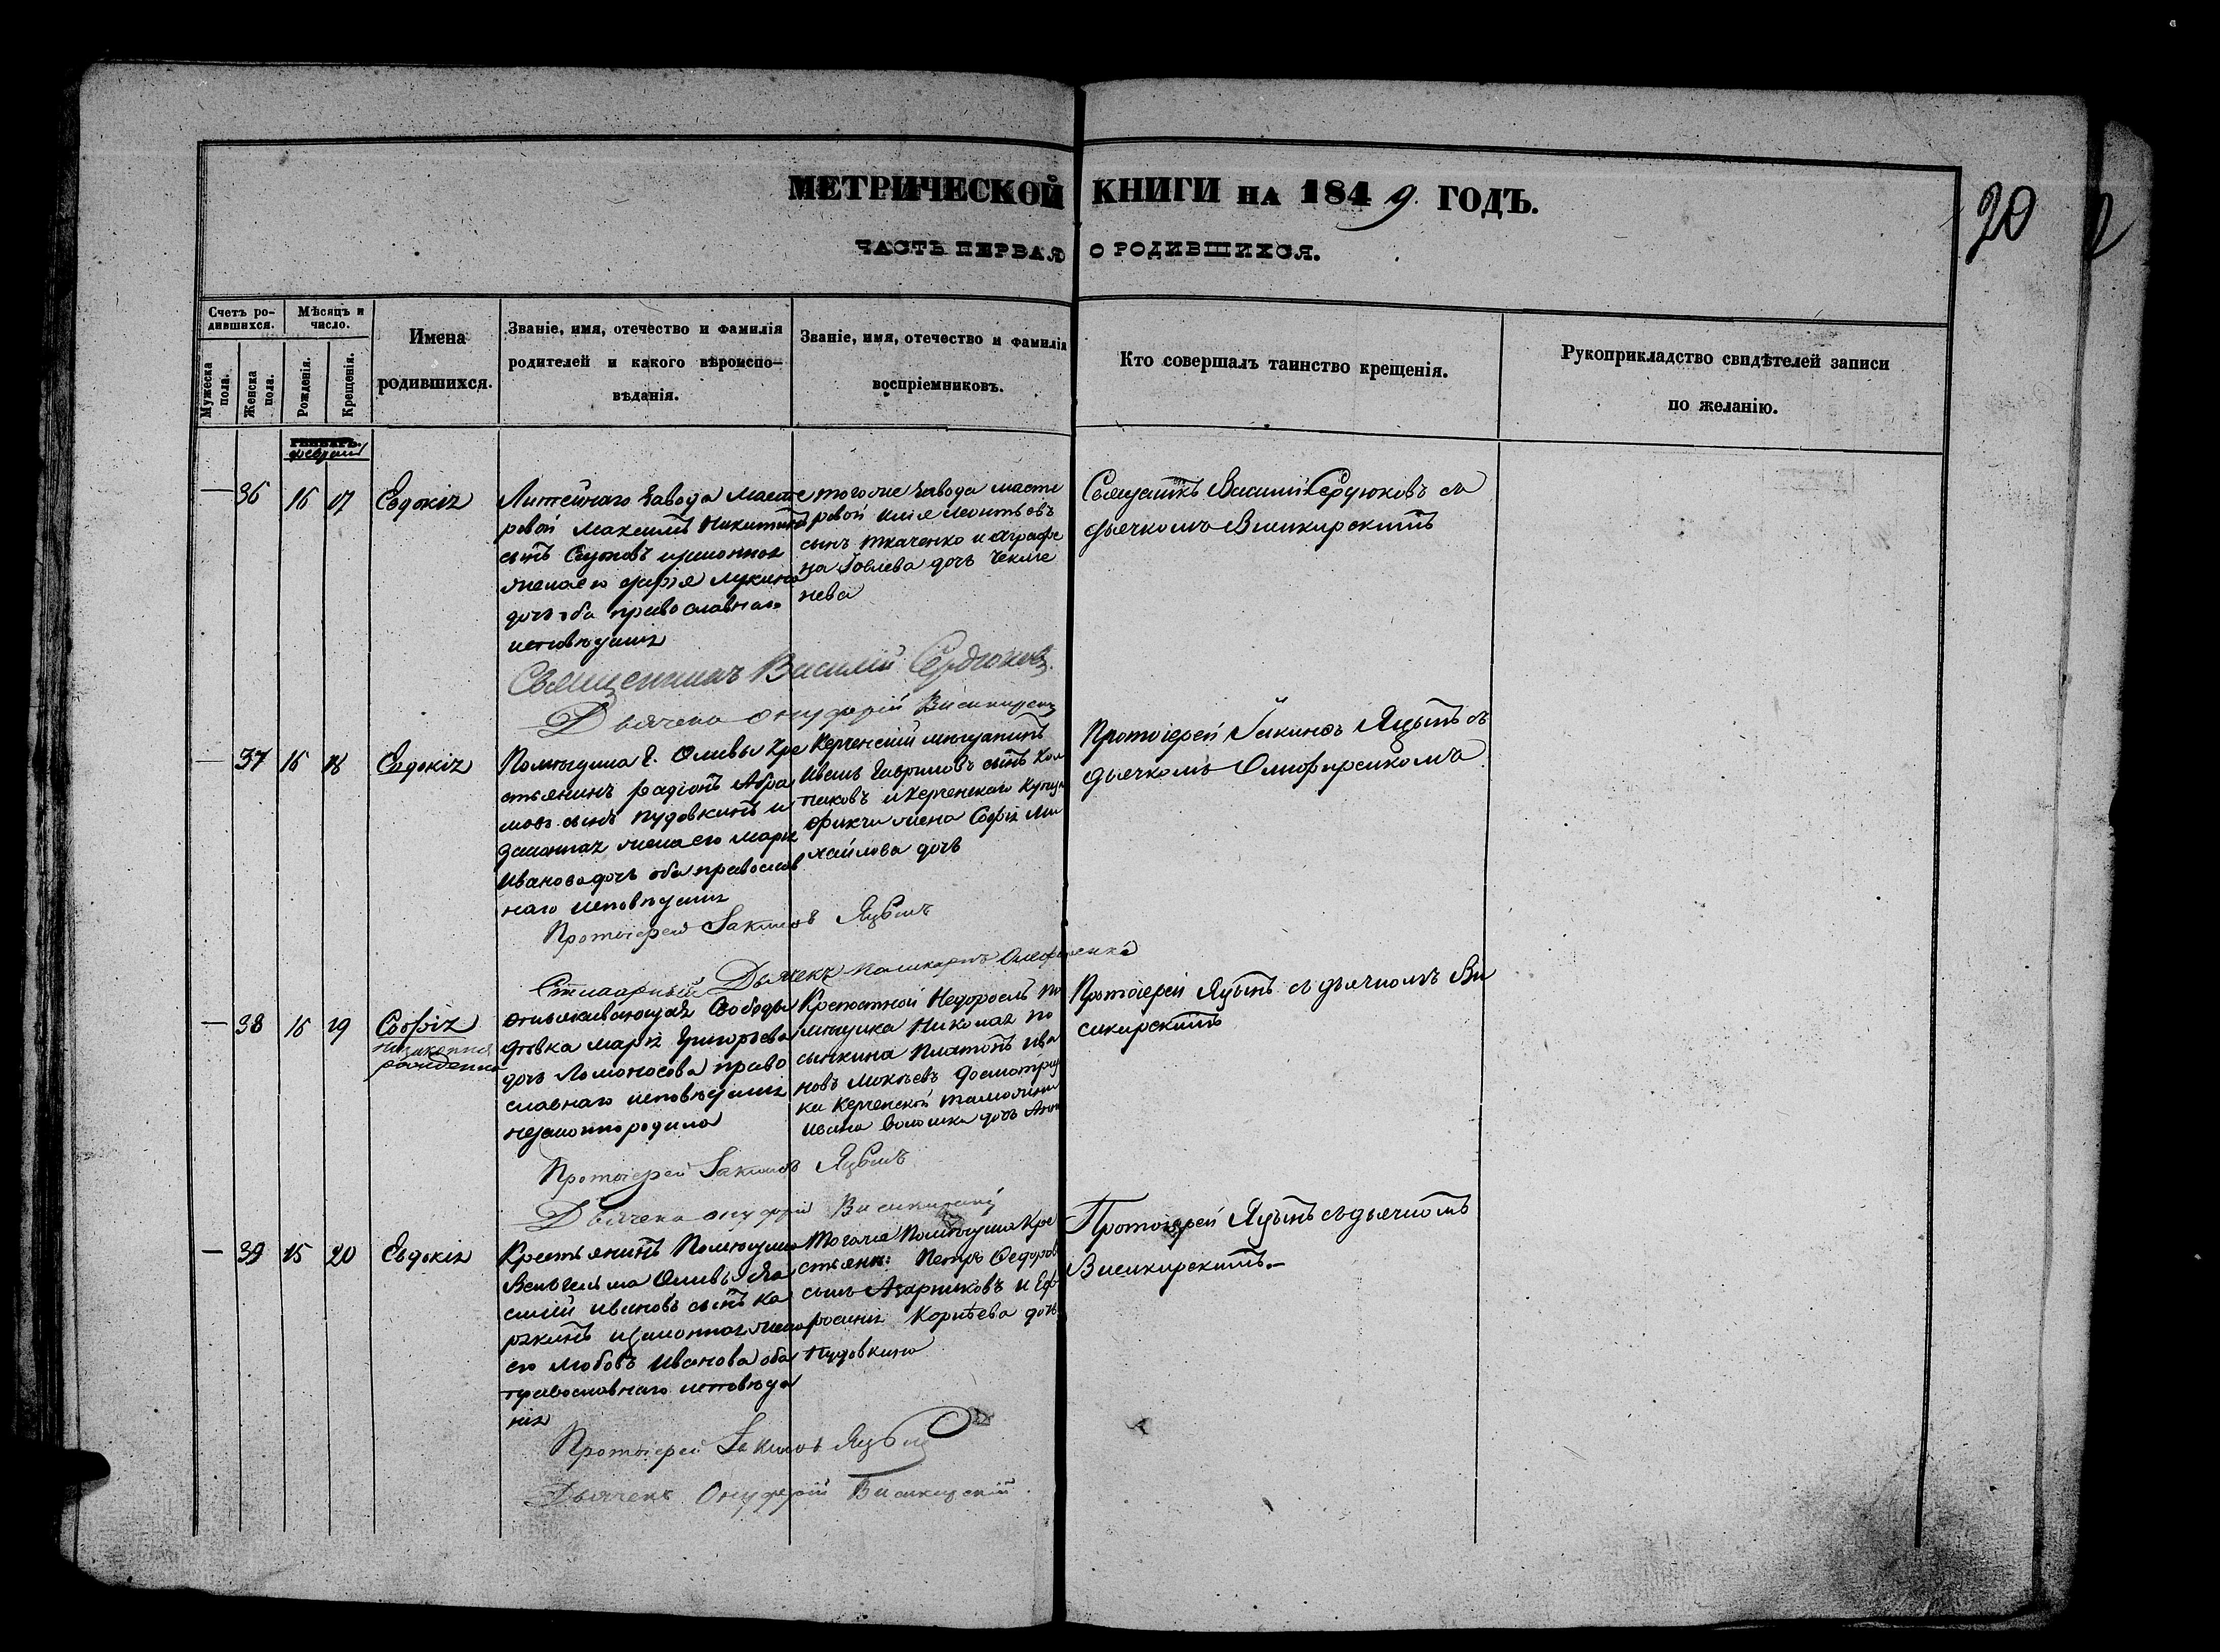 МЕТРИЧЕСКОЙ КНИГИ НА 1849 ГОДЪ.
20
ЧАСТЬ ПЕРВАЯ О РОДИВШИХСЯ.
Счетъ родившихся.
Мужеска пола.
Женска пола.
Мѣсяцъ и число.
Рожденія.
Крещенія.
Имена
родившихся.
Званіе, имя, отечество и фамилія
родителей и какого вѣроиспо-
вѣданія.
Званіе, имя, отечество и фамилія
воспріемниковъ.
Кто совершалъ таинство крещенія.
Рукоприкладство свидѣтелей записи
по желанію.
февраль
— 36 16 17 Евдокія
Литейнаго Завода Масте
ровой Максимъ Никитинъ
сынъ
жена его Лукина
дочь оба православнаго
исповѣданія
того же Завода масте
ровой Илія Леонтьевъ
сынъ Ткаченко и Аграфе
на дочь
нева
Священникъ Василій Сердюковъ съ
дьячкомъ Висикирскимъ
Священникъ Василій Сердюковъ.
Дьячекъ Онуфрій Висикирскій
— 37 16 18 Евдокія
Помѣщика Г. Оливы кре
стьянинъ Радіонъ Абра
мовъ сынъ Пудовкинъ и
законная жена его Марія
Иванова дочь оба православ
наго исповѣданія
Керченскій мещанинъ
Иванъ Гавриловъ сынъ
и Керченскаго Купца
жена Софія Ми
хайлова дочь
Протоіерей Іакинфъ Яцынъ съ
дьячкомъ
Протоіерей Іакинфъ Яцынъ
Дьячекъ
— 38 16 19 Софія
незаконно
рожденная
отыскивающая Свободы
дѣвка Марія Григорьева
дочь Ломоносова право
славнаго исповѣданія
незаконно родила
Крепостной Недоросль по
мѣщика Николая По
Платонъ Ива
новъ досмотрщи
ка Керченской таможни
Ивана дочь
Протоіерей Яцынъ съ дьячкомъ Ви
сикирскимъ
Протоіерей Іакинфъ Яцынъ
Дьячекъ Онуфрій Висикирскій
— 39 15 20 Евдокія
Крестьянинъ Помѣщика
Вильгельма Оливы Ва
силій Ивановъ сынъ Ка
и законная жена
его Любовь Иванова оба
православнаго исповѣда
нія
Того же Помѣщика Кре
стьяни: Петръ Федоров
сынъ и Еф
росинія Корнѣева дочь
Пудовкина
Протоіерей Яцынъ съ дьячкомъ
Висикирскимъ.
Протоіерей Іакинфъ Яцынъ
Дьячекъ Онуфрій Висикирскій.